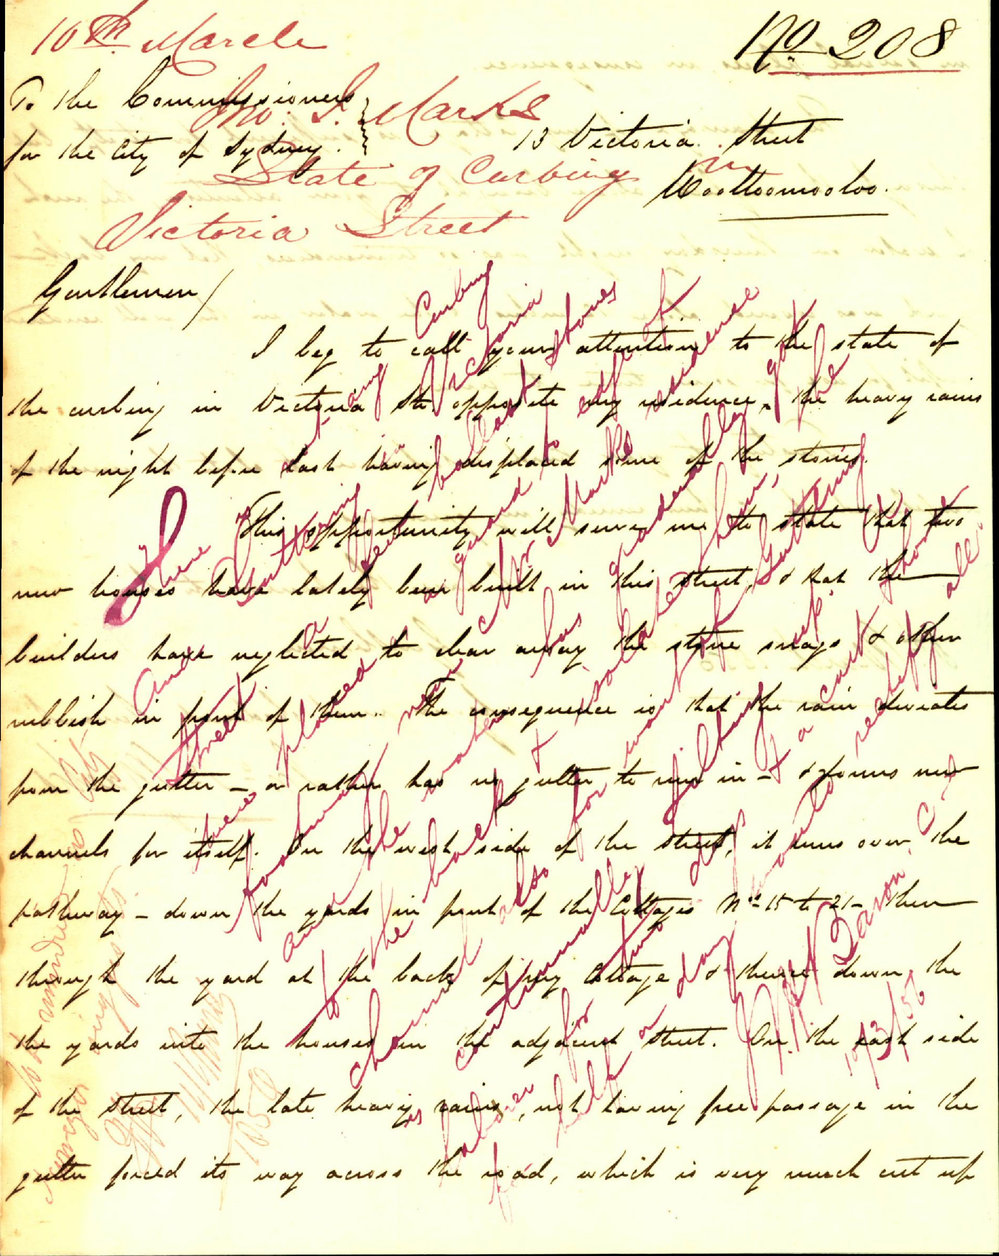 10th March
No 208
To the Commissioners
for the City of Sydney.
Jno. J. Marks
State of Curbing in
Victoria Street
13 Victoria Street
Woolloomooloo.
Gentlemen/
I beg to call your attention to the state of
the curbing in Victoria St opposite my residence, the heavy rains
of the night before last having displaced some of the stones.
This opportunity will serve me to state that two
new houses have lately been built in this street, & that the
builders have neglected to clear away the stone & other
rubbish in front of them. The consequence is that the rain deviates
from the gutter – or rather has no gutter to run in – & forms new
channels for itself. On the west side of the street, it runs over the
pathway – down the yards in front of the Cottages Nos 15 to 21 – then
through the yard at the back of my Cottage & thence down the
the yards into the houses in the adjacent street. On the east side
of the street, the late heavy rains, not having free passage in the
gutter forced its way across the road, which is very much cut up
There is not any Curbing
or Guttering in Victoria
Street a few ballast stones
were placed on edge at
footway near Mr Marks residence
and the water has gradually got
to the back & isolated them, the
channel also for want of Guttering
is continually filling up. A
labor for two days & a cart & horse
half a day would rectify all
17/3/56
1856